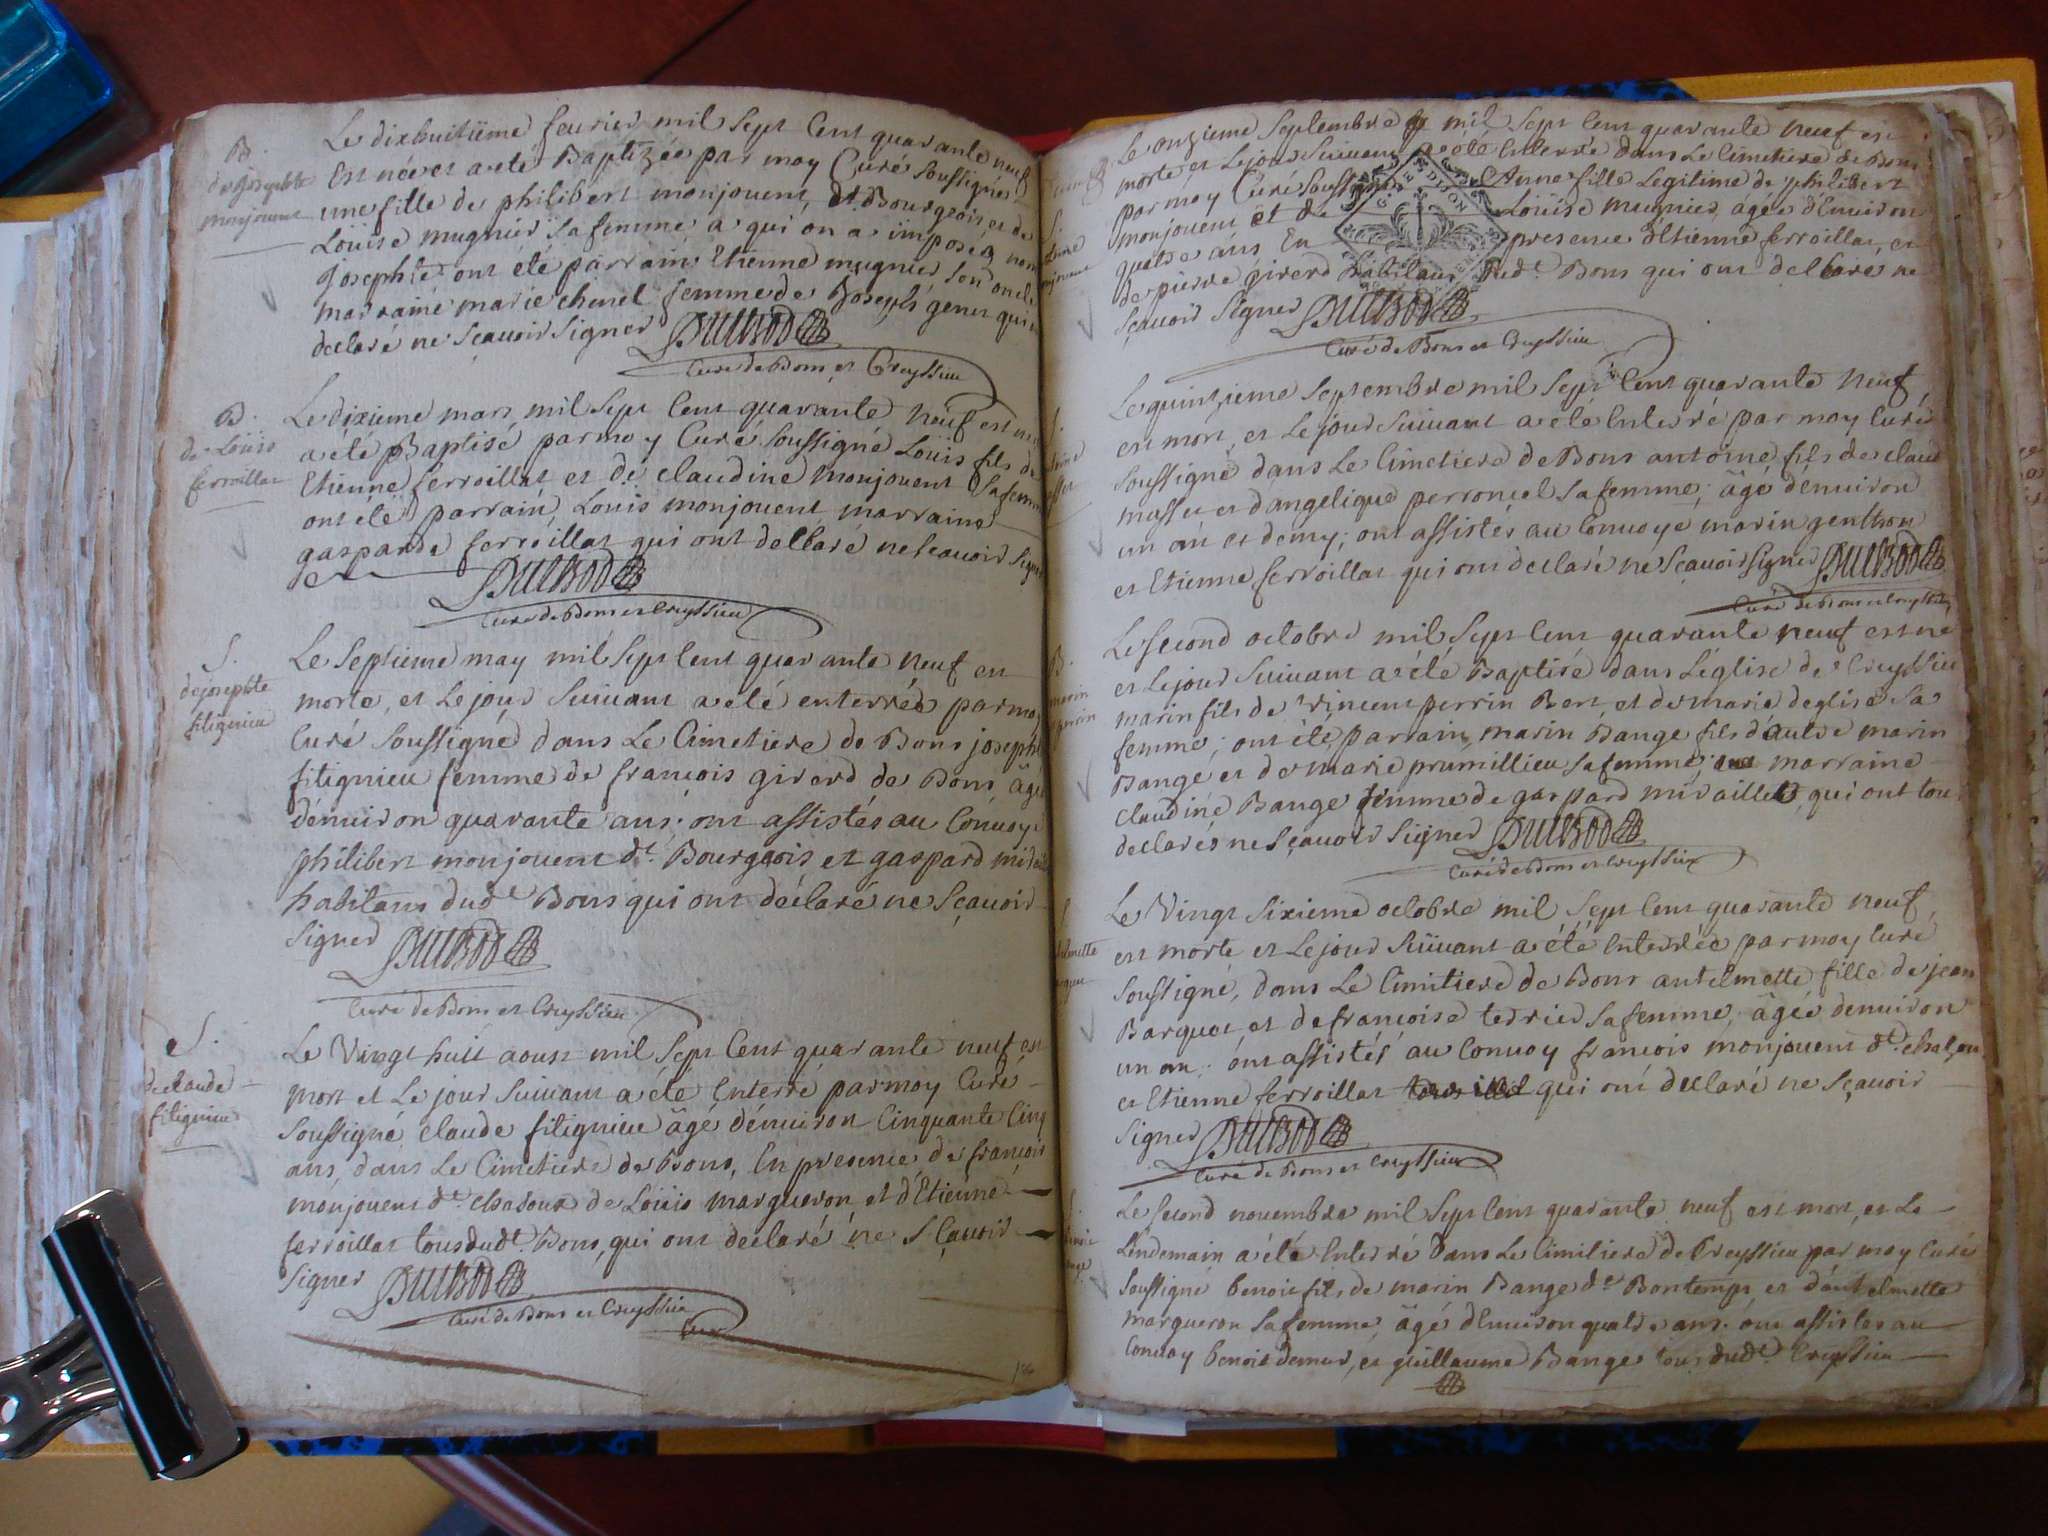 B.
de Josephte
monjouent
Le dixhuitiême feurier mil Sept Cent quarante neuf
Est née et a eté Baptizée par moy Curé Soussigné
une fille de philibert monjouent, dt. Bourgeois, et de
Loüise mugnier sa femme a qui on a imposé nom
Josephte ont été parrain Etienne mugnier Son oncle
marraine marie chenel femme de Joseph genet qui
declaré ne Sçauoir Signer
Curé de Bons et Creyssieu
B.
de Loüis
ferroillat
Le dixieme mars mil Sept Cent quarante neuf est né
a été Baptisé par moy Curé Soussigné Loüis fils de
Etienne ferroillat et de claudine monjouent Sa femme
ont été parrain Louis monjouent marraine
gasparde ferroillat qui ont declaré ne Scauoir Signer
Curé de Bons et Creyssieu
S.
de josephte
fitignieu
Le Septieme may mil Sept Cent quarante neuf est
morte, et Le jour Suiuant a été enterrée par moy
Curé Soussigné dans Le Cimetiere de Bons josephte
fitignieu femme de francois girerd de Bons âgée
d'enuiron quarante ans; ont assistés au Conuoy
philibert monjouent dt. Bourgeois et gaspard
habitans dudt. Bons qui ont declaré ne Sçauoir
Signer
Curé de Bons et Creyssieu
S.
de claude
fitignieu
Le Vingt huit aoust mil Sept Cent quarante neuf est
mort et Le jour Suiuant a été Enterré par moy Curé
Soussigné claude fitignieu âgé d'enuiron Cinquante Cinq
ans, dans Le Cimetiere de Bons, En presence de francois
monjouent dt. de Loüis margueron et d'Etienne
ferroillat tous dudt. Bons, qui ont declaré ne Sçauoir
Signer
Curé de Bons et Creyssieu
Le onzieme Septembre mil Sept Cent quarante neuf est
morte et Le jour Suiuant a été Enterrée dans Le Cimetiere de Bons
par moy Curé Soussigné Anne fille Legitime de philibert
monjouent et de Loüise mugnier, agée d'Enuiron
quatre ans En presence d'Etienne ferroillat, et
de pierre girerd habitans dudt. Bons qui ont declaré ne
Sçauoir Signer
Curé de Bons et Creyssieu
Le quinzieme Septembre mil Sept Cent quarante neuf
est mort, et Le jour Suiuant a été Enterré par moy Curé
Soussigné dans Le Cimetiere de Bons antoine fils de claude
et d'angelique perroncel Sa femme; âgé d'enuiron
un an et demy; ont assistés au Conuoye marin genthon
et Etienne ferroillat qui ont declaré ne Sçauoir Signer
Curé de Bons et Creyssieu
B.
marin
perrin
Le Second octobre mil Sept Cent quarante neuf est né
et Le jour Suiuant a été Baptisé dans L'église de Creyssieu
marin fils de Vincent perrin Bert et de marie deglise Sa
femme; ont été parrain, marin Bange fils d'autre marin
Bange et de marie prumillieu Sa femme; marraine
claudine Bange femme de gaspard miraillet, qui ont tous
declarés ne Sçauoir Signer
Curé de Bons et Creyssieu
Le Vingt Sixieme octobre mil Sept Cent quarante neuf,
est morte et Le jour Suiuant a été Enterrée par moy Curé
Soussigné, dans Le Cimitiere de Bons antelmette fille de jean
Barquet et de francoise terrier Sa femme, âgée d'enuiron
un an; ont assistés au Conuoy francois monjouent dt.
et Etienne ferroillat qui ont declaré ne Sçauoir
Signer
Curé de Bons et Creyssieu
Le Second nouembre mil Sept Cent quarante neuf est mort, et Le
Lendemain a été Enterré dans Le Cimitiere de Creyssieu par moy Curé
Soussigné benoit fils de marin Bange dt. Bontemps et d'antelmette
margueron Sa femme, âgé d'Enuiron quatre ans; ont assistés au
Conuoy benoit demur, et guillaume Bange tous dudt. Creyssieu